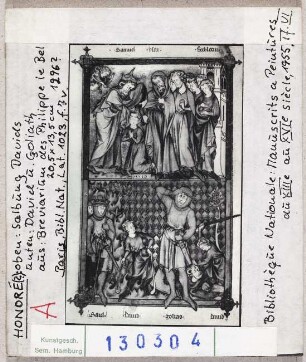 HONORÉ, oben: Salbung Davids
unten: David u. Goliath
aus: Breviarium des Philippe le Bel
20,5 x 13,5 cm 1296?
Paris Bibl. Nat. Lat. 1023. f. 7 v
Samuel
David
Saul
David
golias
david
Bibliothèque Nationale: Manuscrits a Peintures
du XIIIe au XVIe siècle, 1955, Tf. VI
A
Kunstgesch.
Sem. Hamburg
130304